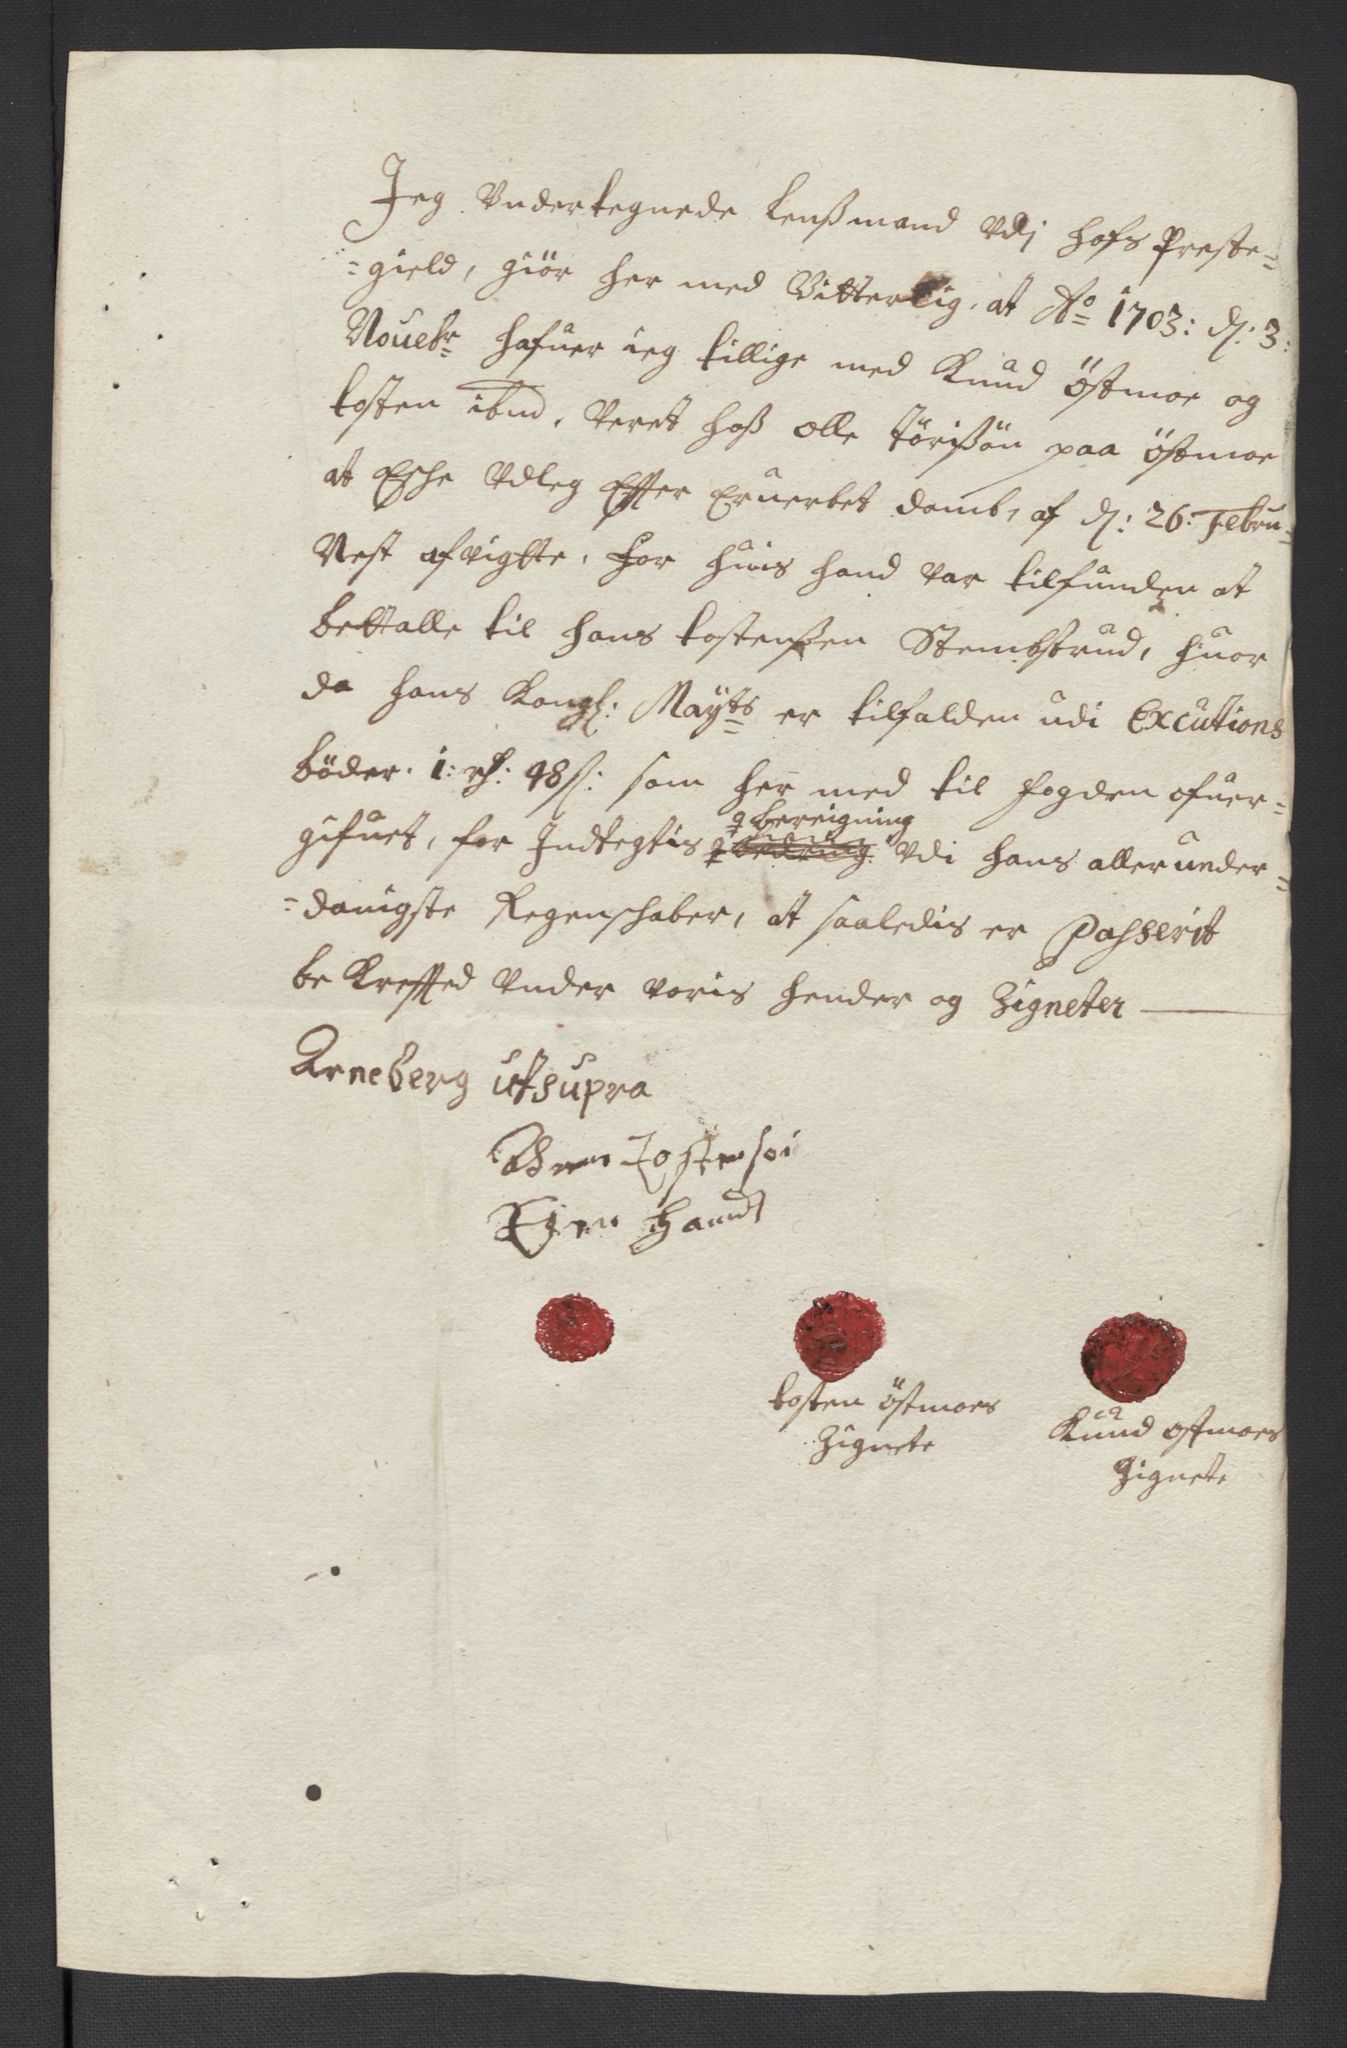 Jeg Undertegnede Lenßmand Udj Hofs Preste=
=gield, giör her med Vitterlig, at Ao 1703: d: 3:
Nouebr hafuer ieg tillige med Knud Östmoe og
tosten ibm, Veret hoß olle törißön paa östmoe
at Eshe Udleg Effter Eruerbet domb, af d: 26: Febru=
Nest afvigtte, for huis hand var tilfunden at
bettalle til Hans tostenßen Stembsrud, huor
da hans Kongl: Mayts er tilfalden udi Excutions
böder. 1: rd: 48 s: som her med til fogden ofuer=
gifuet, for Indtegtis bereigning Udi hans allerunder=
=danigste Regenschaber, at saaledis er Passerit
be Kreffted Under voris hender og Zigneter
Arneberg ut supra
Tostensøn
Egen Haand
tosten östmoes
Zignete
Knud ostmoes
Zignete